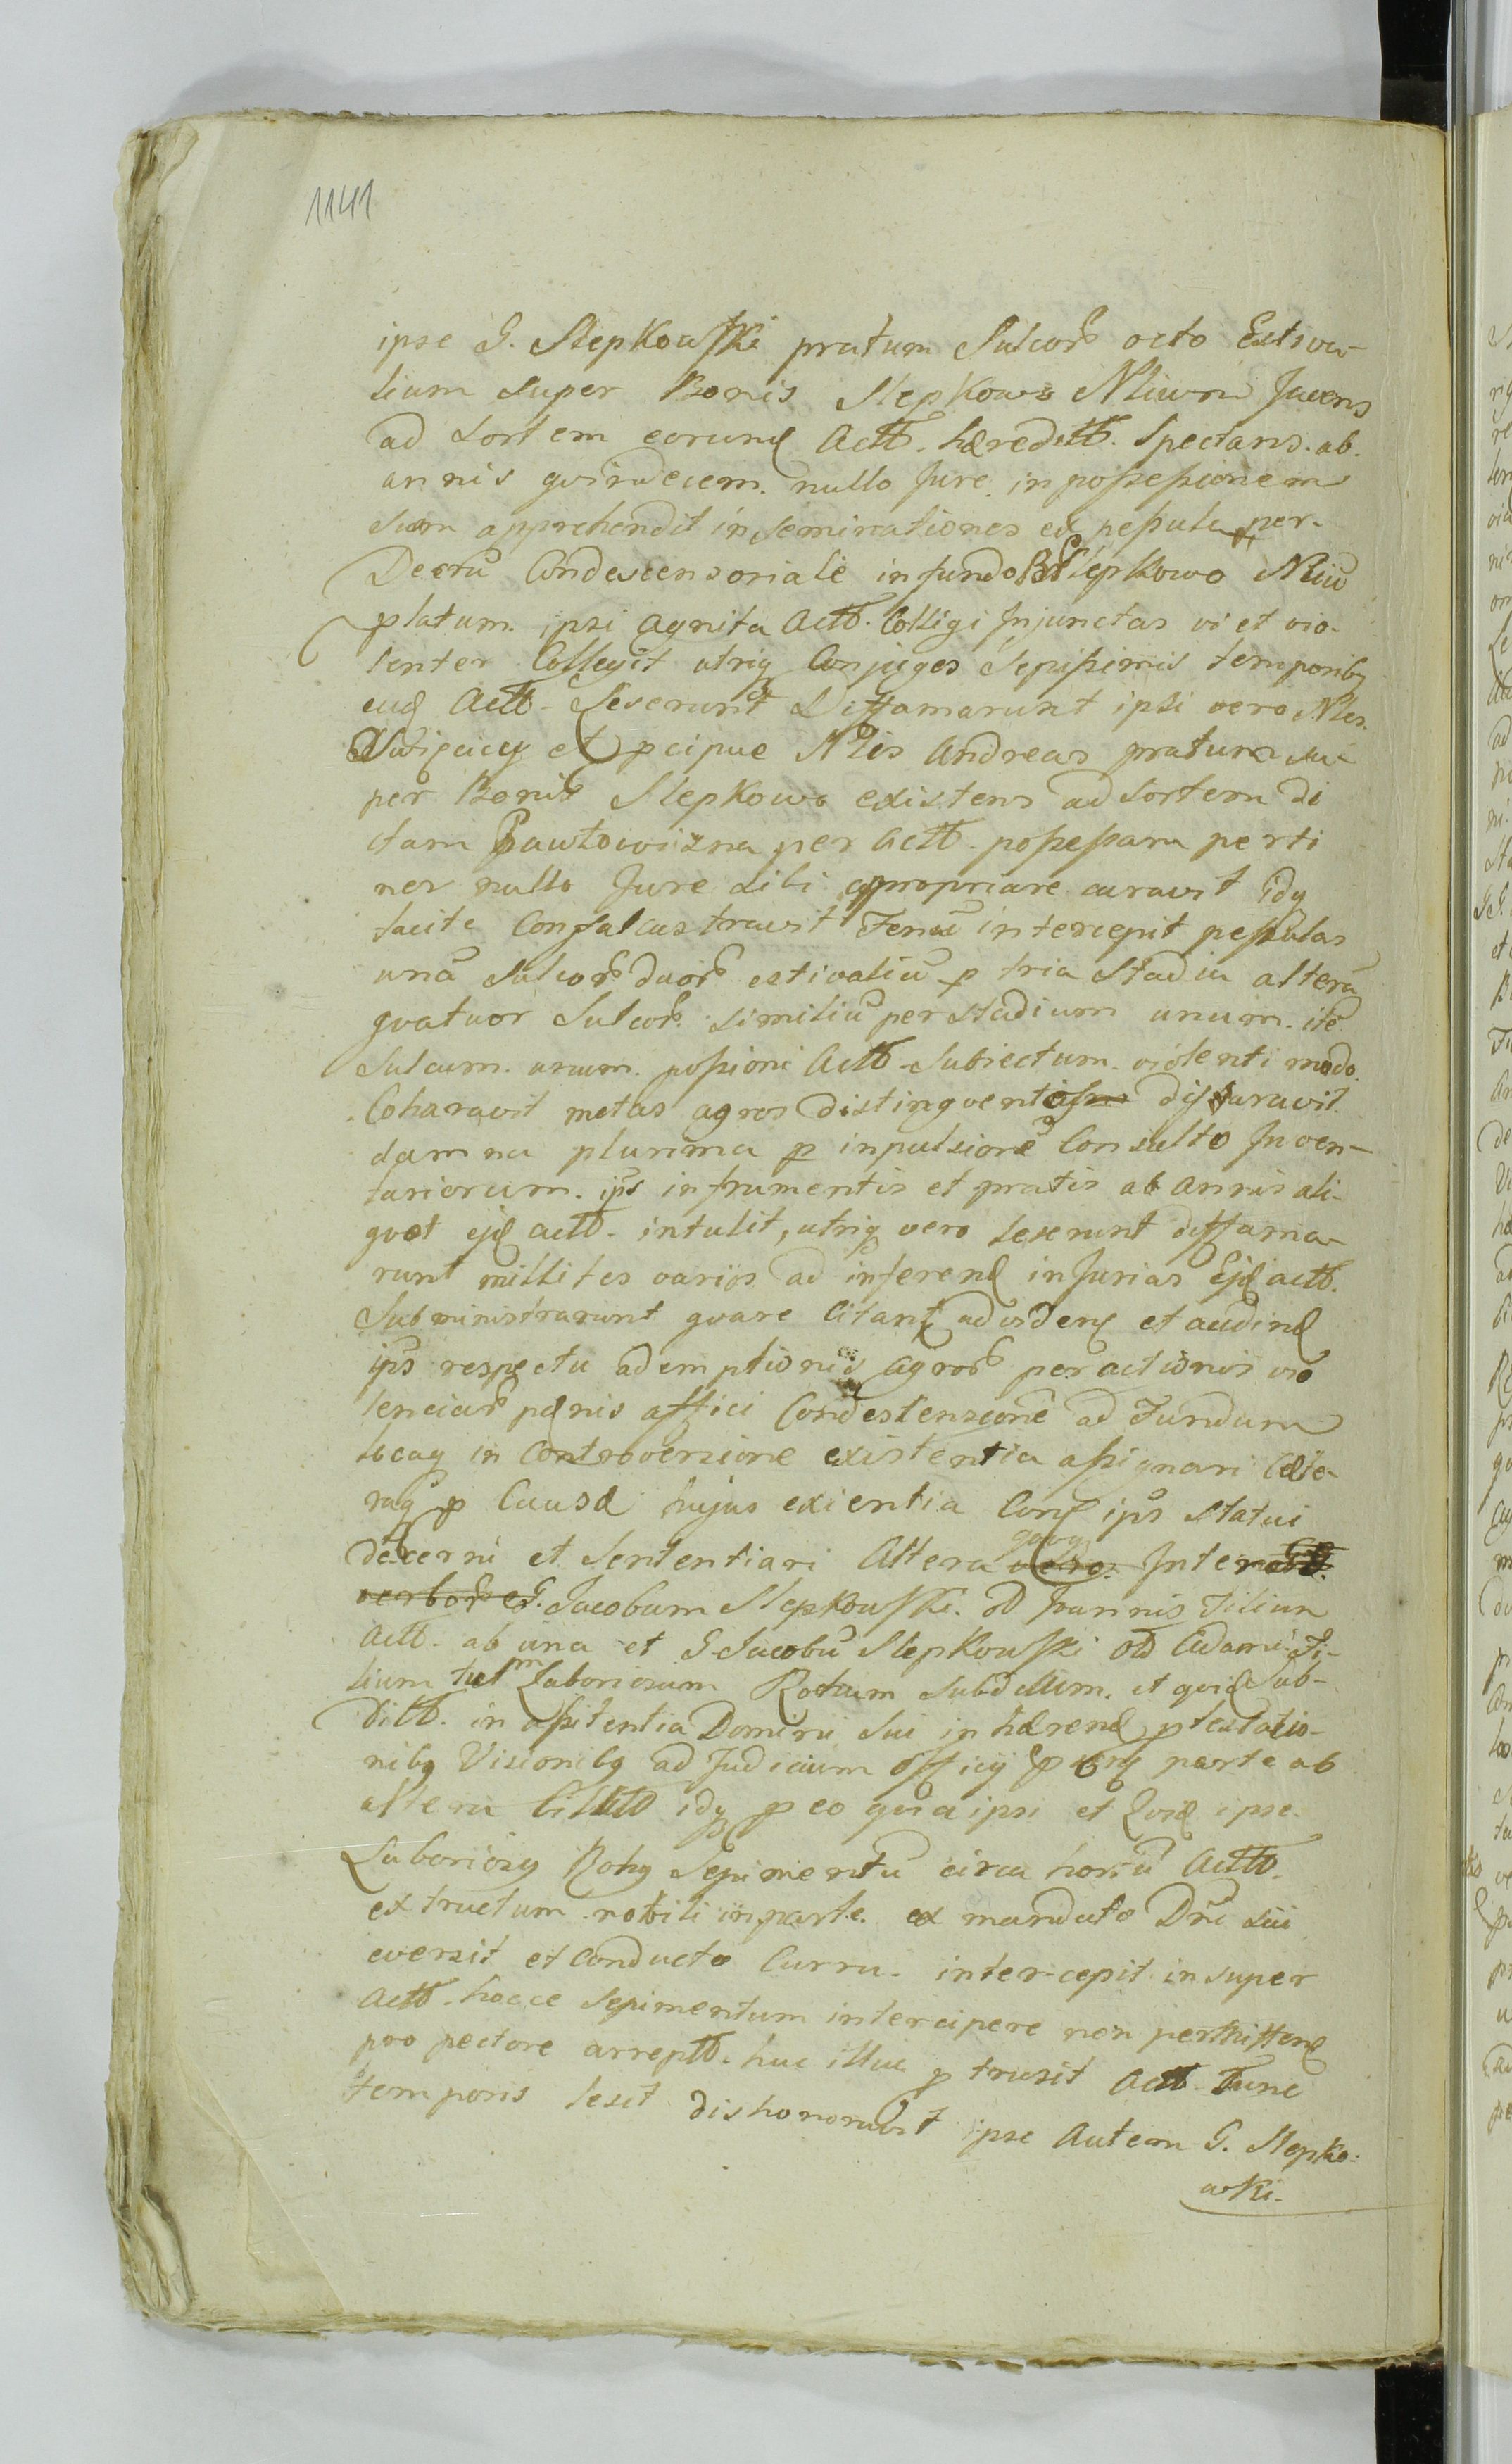 1141
ipse G. Slepkowski pratum Sulcor. octo Estiva-
lium super Bonis Slepkowo Nliwm Jacens
ad sortem eorund Actt. hæreditt. Spectans. ab.
annis quindecem. nullo Jure in possessionem
suam apprehendit inseminationes ex pessula per-
Decrū Condescensoriale in fundo Slepkowo Nliū
platum. ipsi agnita Actt. Colligi Injunctas vi et vio-
lenter Collegit utriq Conjuges Sepissimis temporibq
eud Actt. Leserunt Diffamarunt ipsi vero Nles.
et pcipue Nlis Andreas pratum su-
per Bonis Slepkowo existens ad sortem di
ctam Pawłowizna per Actt. possessam perti
nes nullo Jure sibi appropriare curavit idq
tacite Confalcastravit Fenū intercepit pessulas
unā sulcor duor estivaliū p tria Stadia alterā
quatuor Sulcor. similiū per stadium unum. itē
Sulcum. unum. possioni Actt. Subiectum. violenti modo.
Coharavit metas agros distinguent disparavit.
damna plurima p inpulsionē Consulto Inven-
tariorum. ips in frumentis et pratis ab annis ali-
quot ejd actt. intulit, utriq vero leserunt diffama-
runt millites varios ad inferend injurias Ejd actt.
Subministrarunt quare Citant ad vidend et audiend
ips respectu ademptionis agror peractionis vio
lenciar pænis affici Condescensionē ad Fundum
locaq in Controversione existentia assignari Cæte-
raq p Causa hujus exientia Conf ips statui
decerni et Sententiari Altera quoq vero. Inter
verbor et G. Jacobum Slepkowski. od Joannis Filium
Actt. ab una et G Jacobū Slepkowski od Adami Fi-
lium tum Laboriosum Rochum subdittum. et quid Sub-
ditt. in assitentia Domini sui inhærend ptestatio-
nibq Visionibq ad Judicium officij parte ab
altera Citatt idq p eo quia ipsi et quid ipse.
Laboriosq Rohq Sepimentū circa hortū Actt.
extructum nobili in parte. ex mandato Dni sui
eversit et Conducto Curru. intercepit insuper
Actt. hocce sepimentum intercipere non permittend
pro pectore arreptt. huc illuc p trusit Actt. Tunc
temporis lesit dishonoravit ipse Autem G. Slepko-
wski.